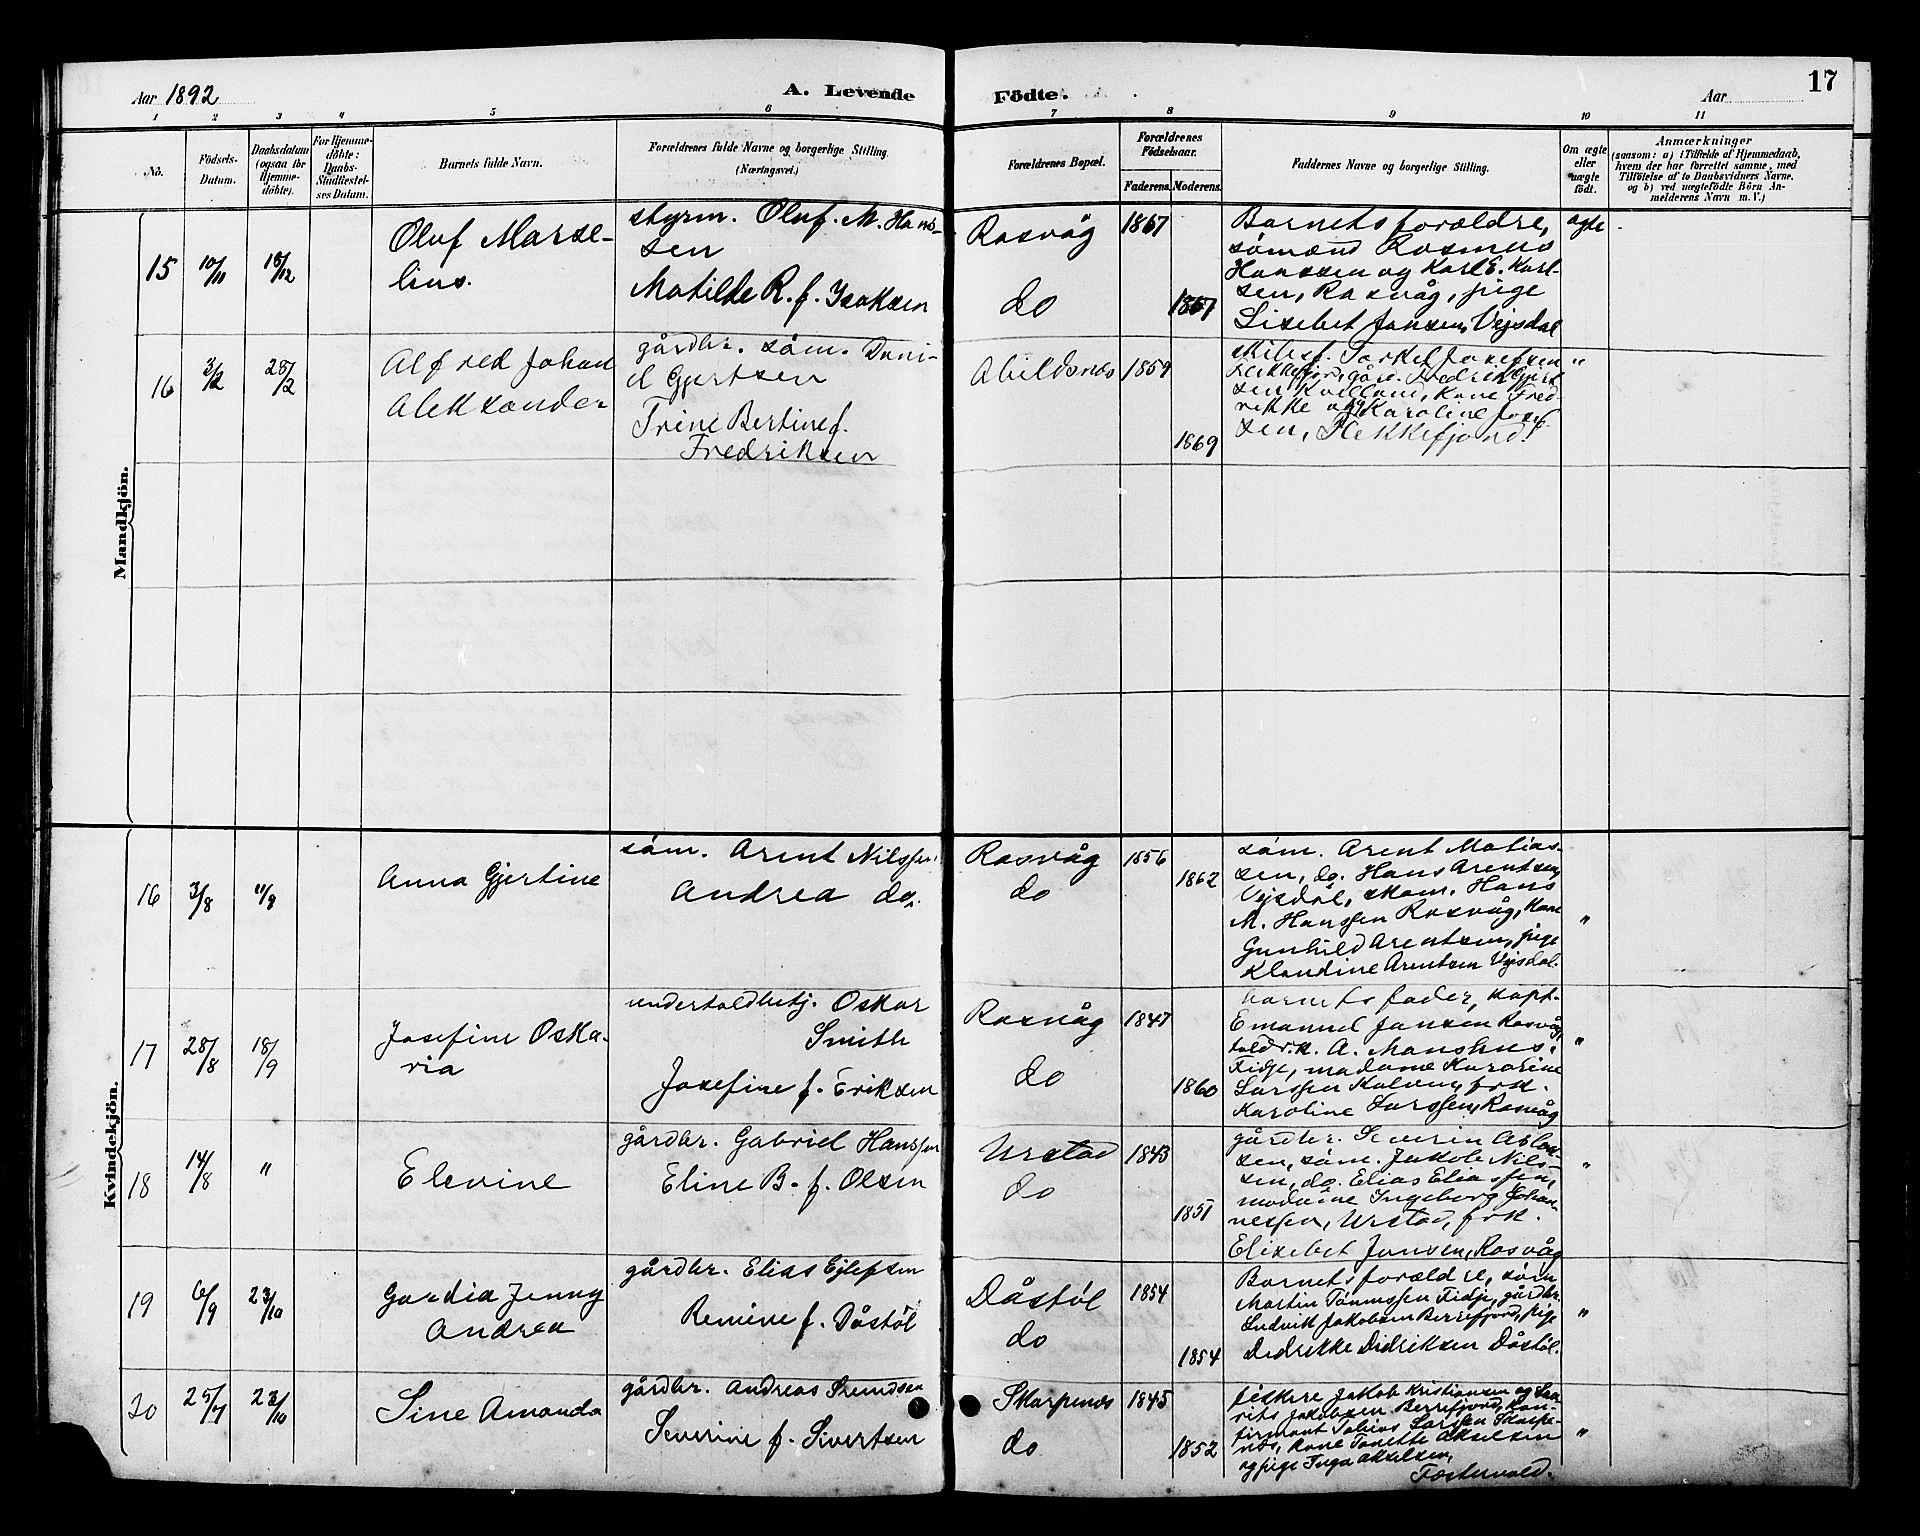 Aar 1892
A. Levende
Födte.
Aar
17
1 2 3 4 5 6 7 8 9 10 11
No.
Födsels-
Datum.
Daabsdatum
(ogsaa for
Hjemme-
döbte).
For Hjemme-
döbte:
Daabs-
Stadfæstel-
ses Datum.
Barnets fulde Navn.
Forældrenes fulde Navne og borgerlige Stilling.
(Næringsvei.)
Forældrenes Bopæl.
Forældrenes
Födselsaar.
Faderens. Moderens.
Faddernes Navne og borgerlige Stilling.
Om ægte
eller
uægte
födt.
Anmærkninger
(saasom: a) i Tilfælde af Hjemmedaab,
hvem der har forrettet samme, med
Tilföielse af to Daabsvidners Navne,
og b) ved uægtefödte Börn An-
melderens Navn m. V.)
Mandkjön.
15
10/11
18/12
Oluf Marse-
lius.
styrm. Oluf. M. Hans-
sen
Matilde R. f. Isaksen
Rasvåg
do
1867
1867
Barnets forældre,
sömænd Rasmus
Hanssen og Karl E. Karl-
sen, Rasvåg, pige
Lisebet Jansen, Vejsdal
ægte
16
3/2
28/2
Alfred Johan
Aleksander
gårdbr. söm. Dani-
el Gjertsen
Trine Bertine f.
Fredriksen
Abildsnæs
1859
1869
Torkel Josefsen
Flekkefjord, Fredrik Gjert-
sen Kvelland, kone Fred-
rikke og Karoline Josef-
sen, Flekkefjord.
"
Kvindekjön.
16
3/8
11/9
Anna Gjertine
söm. Arent Nilssen
Andrea do.
Rasvåg
do
1856
1862
söm. Arent Matias-
sen, do. Hans Arentsen,
Vejsdal, skom. Hans
M. Hanssen Rasvåg, kone
Gunhild Arentsen, pige
Klandine Arentsen Vejsdal.
"
17
28/8
18/9
Josefine Oska-
ria
undertoldbetj. Oskar
Smith
Josefine f. Eriksen
Rasvåg
do
1847
1860
barnets fader, kapt.
Emanuel Jansen Rasvåg,
A. Manshus,
Fidje, madame Karoline
Larssen Kalven, frk.
Karoline Larssen, Rasvåg
"
18
14/8
"
Elevine
gårdbr. Gabriel Hanssen
Eline B. f. Olsen
Urstad
do
1843
1851
gårdbr. Severin Aslak-
sen, söm. Jakob Nils-
sen, do. Elias Eliassen,
madame Ingeborg Johan-
nessen, Urstad, frk.
Elisebet Jansen, Rasvåg
"
19
6/9
23/10
Gardia Jenny
Andrea
gårdbr. Elias Ejlefsen
Remine f. Dåstöl
Dåstöl
do
1854
1854
Barnets forældre, söm
Martin Tönnessen Fidje, gårdbr.
Ludvik Jakobsen Berrefjord, pige
Didrikke Didriksen Dåstöl.
"
20
25/7
23/10
Sine Amanda
gårdbr. Andreas Svendsen
Severine f. Sivertsen
Skarpenæs
do
1845
1852
fiskere Jakob Kristiansen og Lau-
rits Jakobsen Berrefjord, kon-
firmant Tobias Larssen Skarpe-
næs, kone Tonette Akselsen
og pige Inga Akselsen,
"